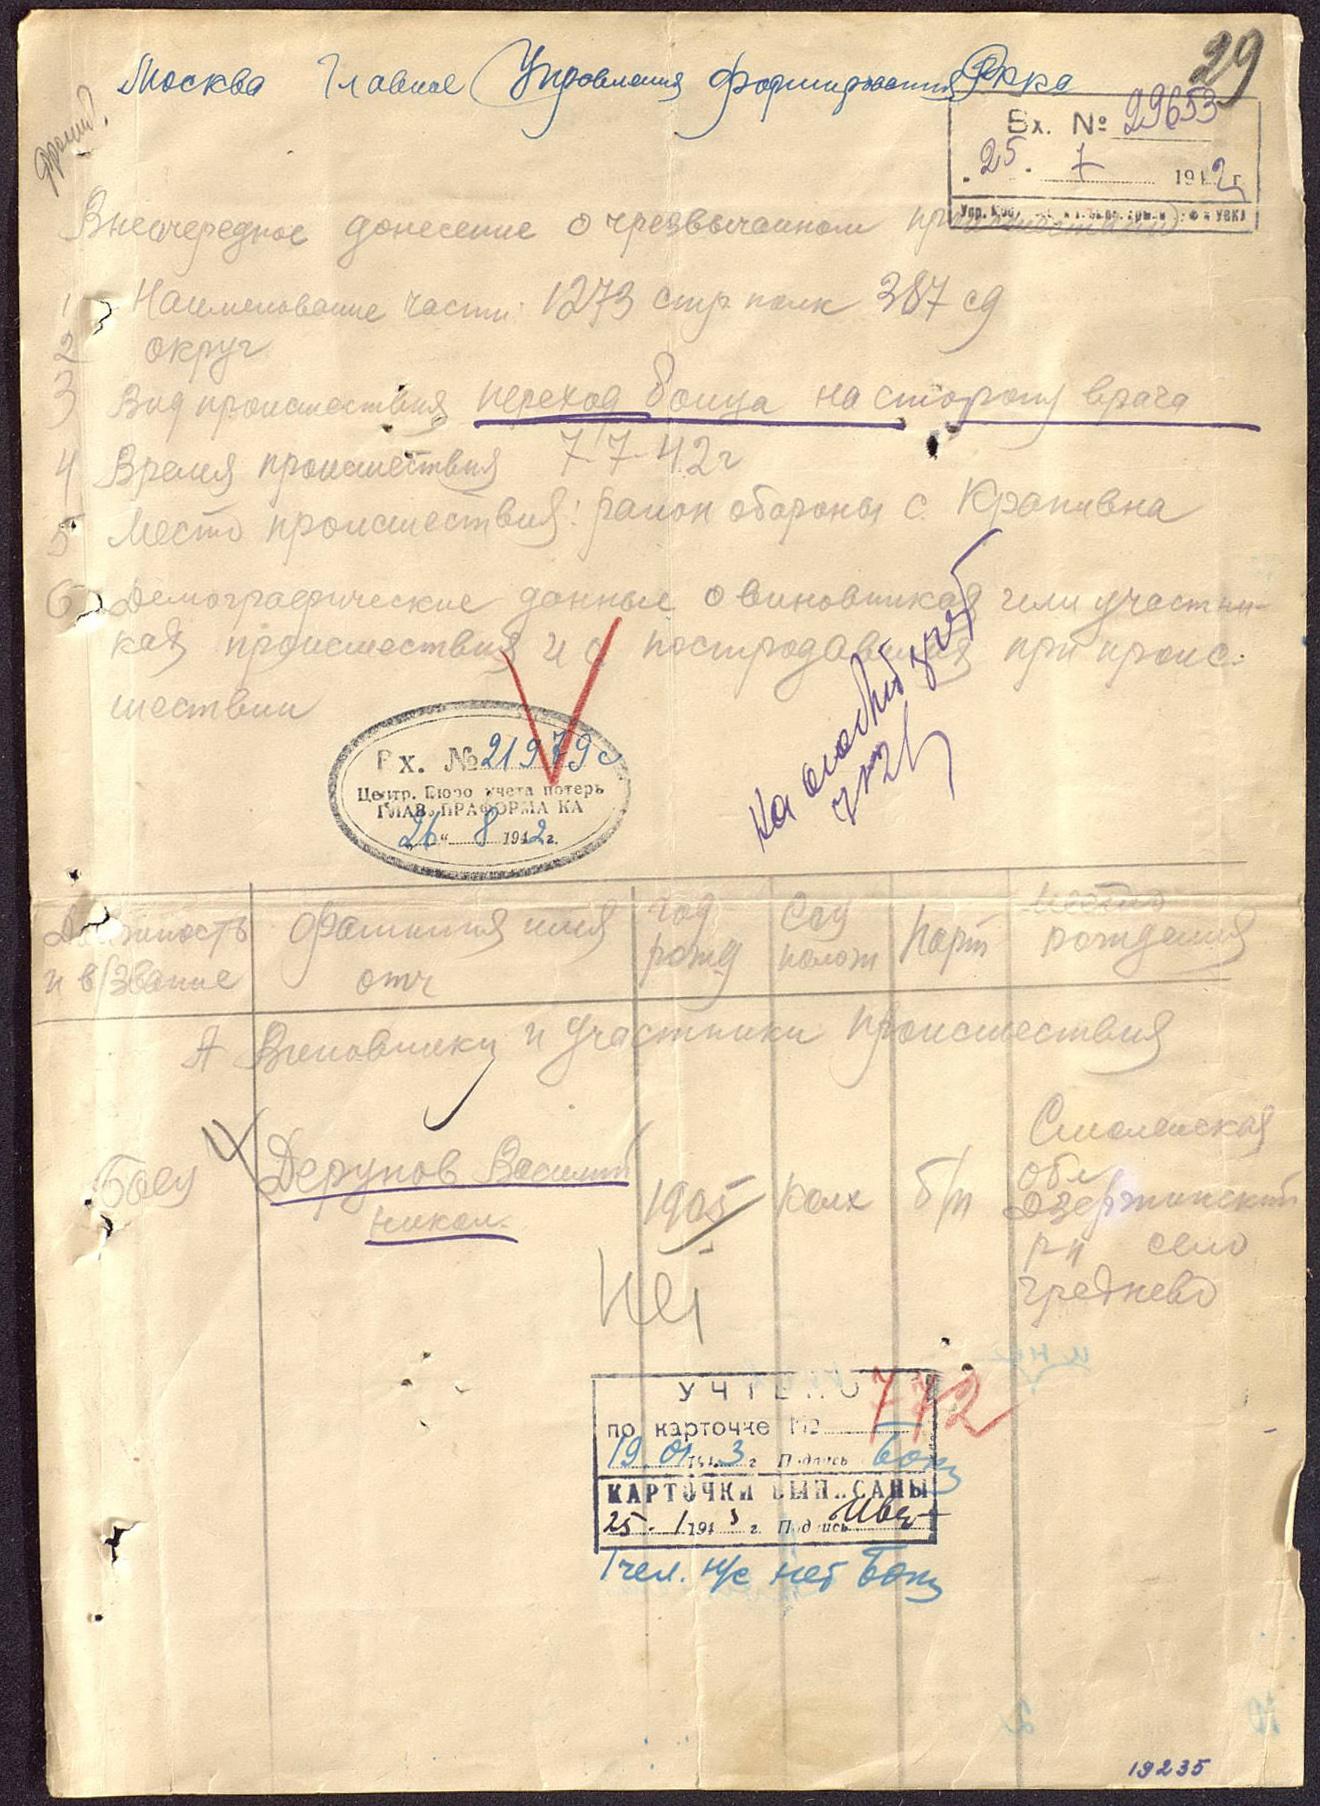 29
Москва Главное Управления формирования Ркка
Вх. № 29653
25. 7 1942 г
Внеочередное донесение о чрезвычаином
1 Наименование части: 1273 стр полк 387 сд
2 округ
3 Вид происшествия переход бойца на сторону врага
4 Время происшествия 7-7-42 г
5 Место происшествия: район обороны с. Крапивна
6 Демографические данные о виновниках или участни-
ках происшествия и о пострадавших при проис-
шествии
Вх. № 21979с
Центр. Бюро учета потерь
ГЛАВ. ПРАФОРМА КА
26 " 8 1942 г.
На особый учет
Должность и в/звание
фамилия имя отч
год рожд
Соц полож
Парт
место рождения
А Виновники и участники происшествия
Боец
Дерунов Василий
Никол.
1905
колх
б/п
Смоленская
обл
Дзержинский
р-н село
нет
УЧТЕНО
по карточке № 772
19.01 1943 г Подпись
КАРТОЧКИ ВЫПИСАНЫ
25 / 1 1943 г. Подпись
1 чел. н/с нет
19235